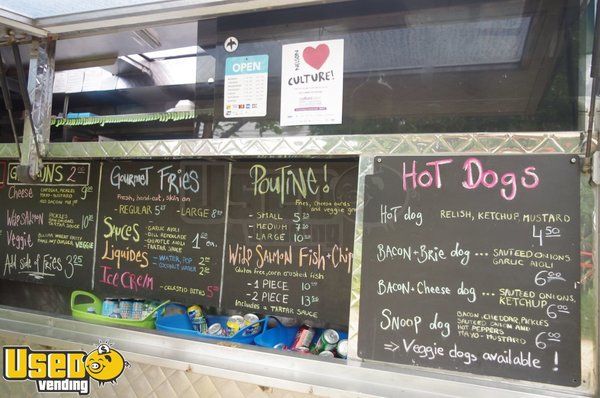 OPEN
NELSON
CULTURE!
ONS 2.00
Cheese CHEDDAR, PICKLES
MAYO-MUSTARD 9
Wild Salmon PICKLES
TARTAR SAUCE 10
Veggie
VEGGIE
Add side of fries 3.25
Gourmet Fries
Fresh, hand-cut, skin on
- REGULAR 5 - LARGE 8
Sauces - GARLIC AIOLI
- DILL REMOULADE
- CHIPOTLE AIOLI
- TARTAR SAUCE 1 on
Liquides - WATER, POP 2
- COCONUT WATER 2
Ice Cream - SELECTED BITES 5
Poutine!
Fries, cheese curds
and veggie
- SMALL 5
- MEDIUM 7
- LARGE 10
Wild Salmon Fish + Chips
Gluten free, corn crusted fish
- 1 PIECE 10
- 2 PIECE 13
* includes a TARTAR SAUCE
Hot Dogs
Hot dog RELISH, KETCHUP, MUSTARD
4.50
Bacon + Brie dog ... SAUTEED ONIONS
GARLIC AIOLI
6.00
Bacon + Cheese dog ... SAUTEED ONIONS,
KETCHUP 6.00
Snoop dog BACON, CHEDDAR, PICKLES
SAUTEED ONION AND
HOT PEPPERS
MAYO-MUSTARD 6.00
⇒ Veggie dogs available!
USED
vending